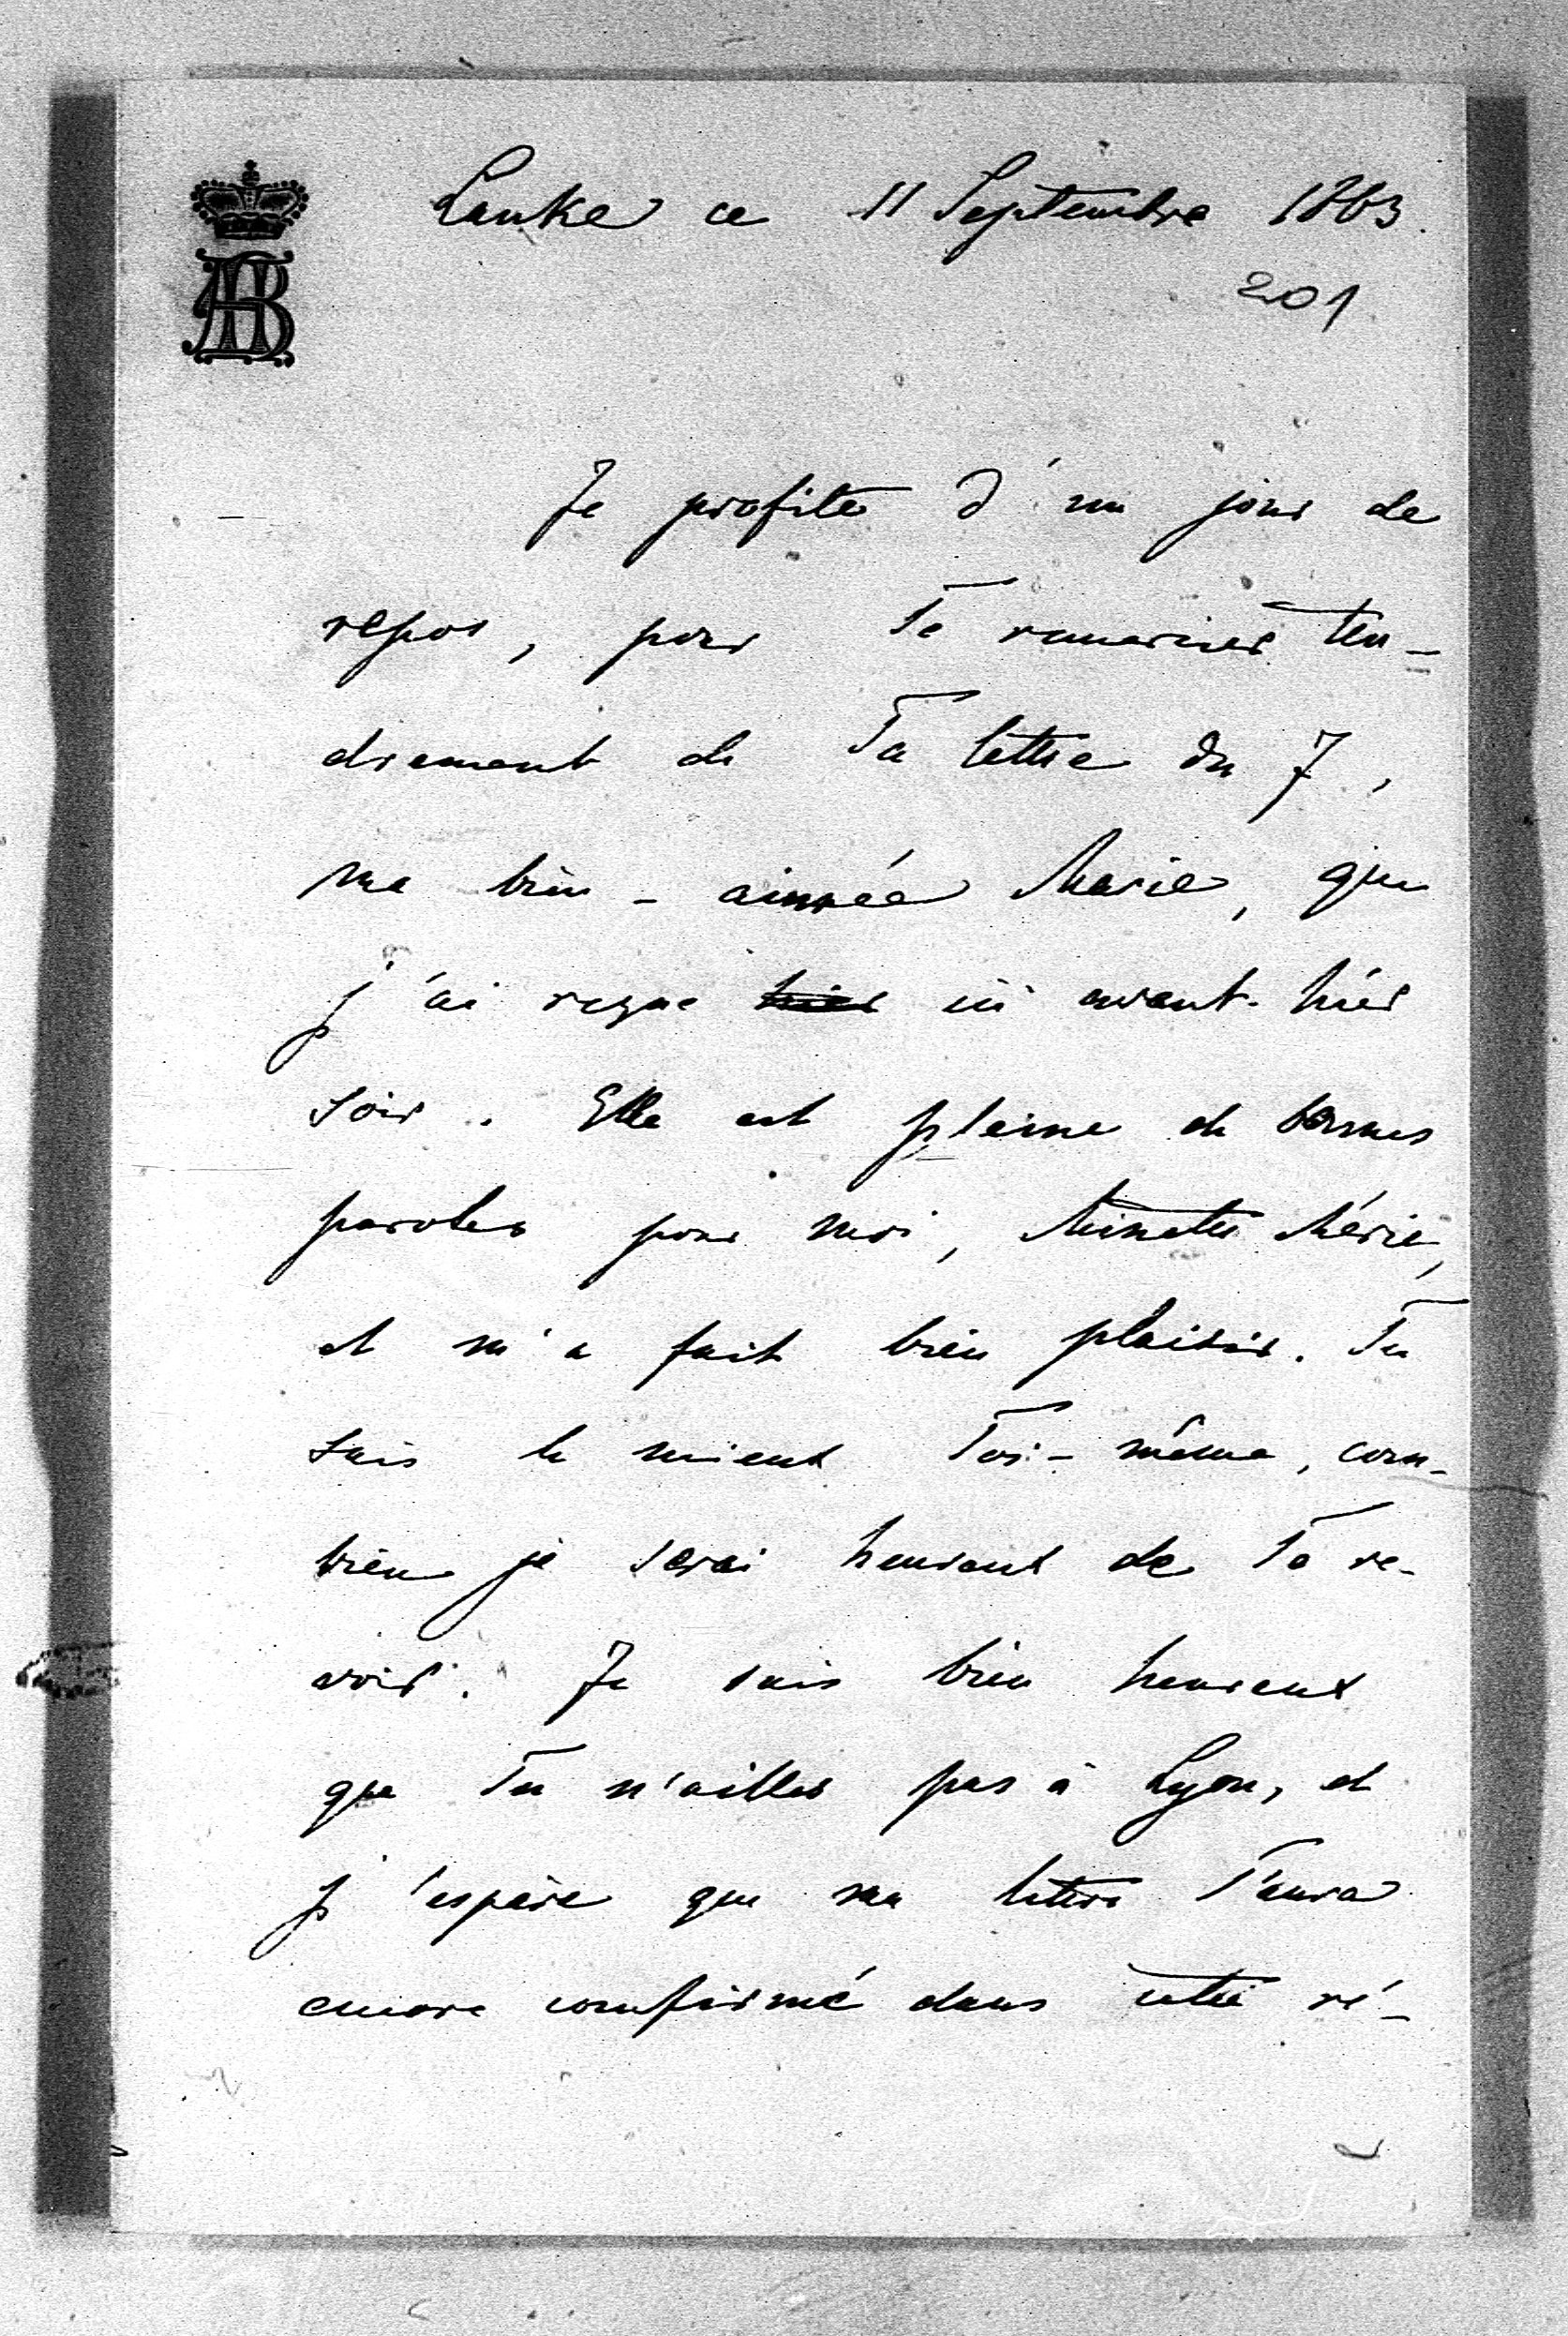 Lanke ce 11 Septembre 1863.
201
Je profite d'un jour de
repos, pour Te remercier ten-
drement de Ta lettre du 7,
ma bien-aimée Marie, que
j'ai reçue hier ici avant-hier
soir. Elle est pleine de bonnes
paroles pour moi, Minette chérie,
et m'a fait bien plaisir. Tu
sais le mieux Toi-même, com-
bien je serai heureux de Te re-
voir. Je suis bien heureux
que Tu n'ailles pas à Lyon, et
j'espère que ma lettre T'aura
encore confirmé dans cette ré-